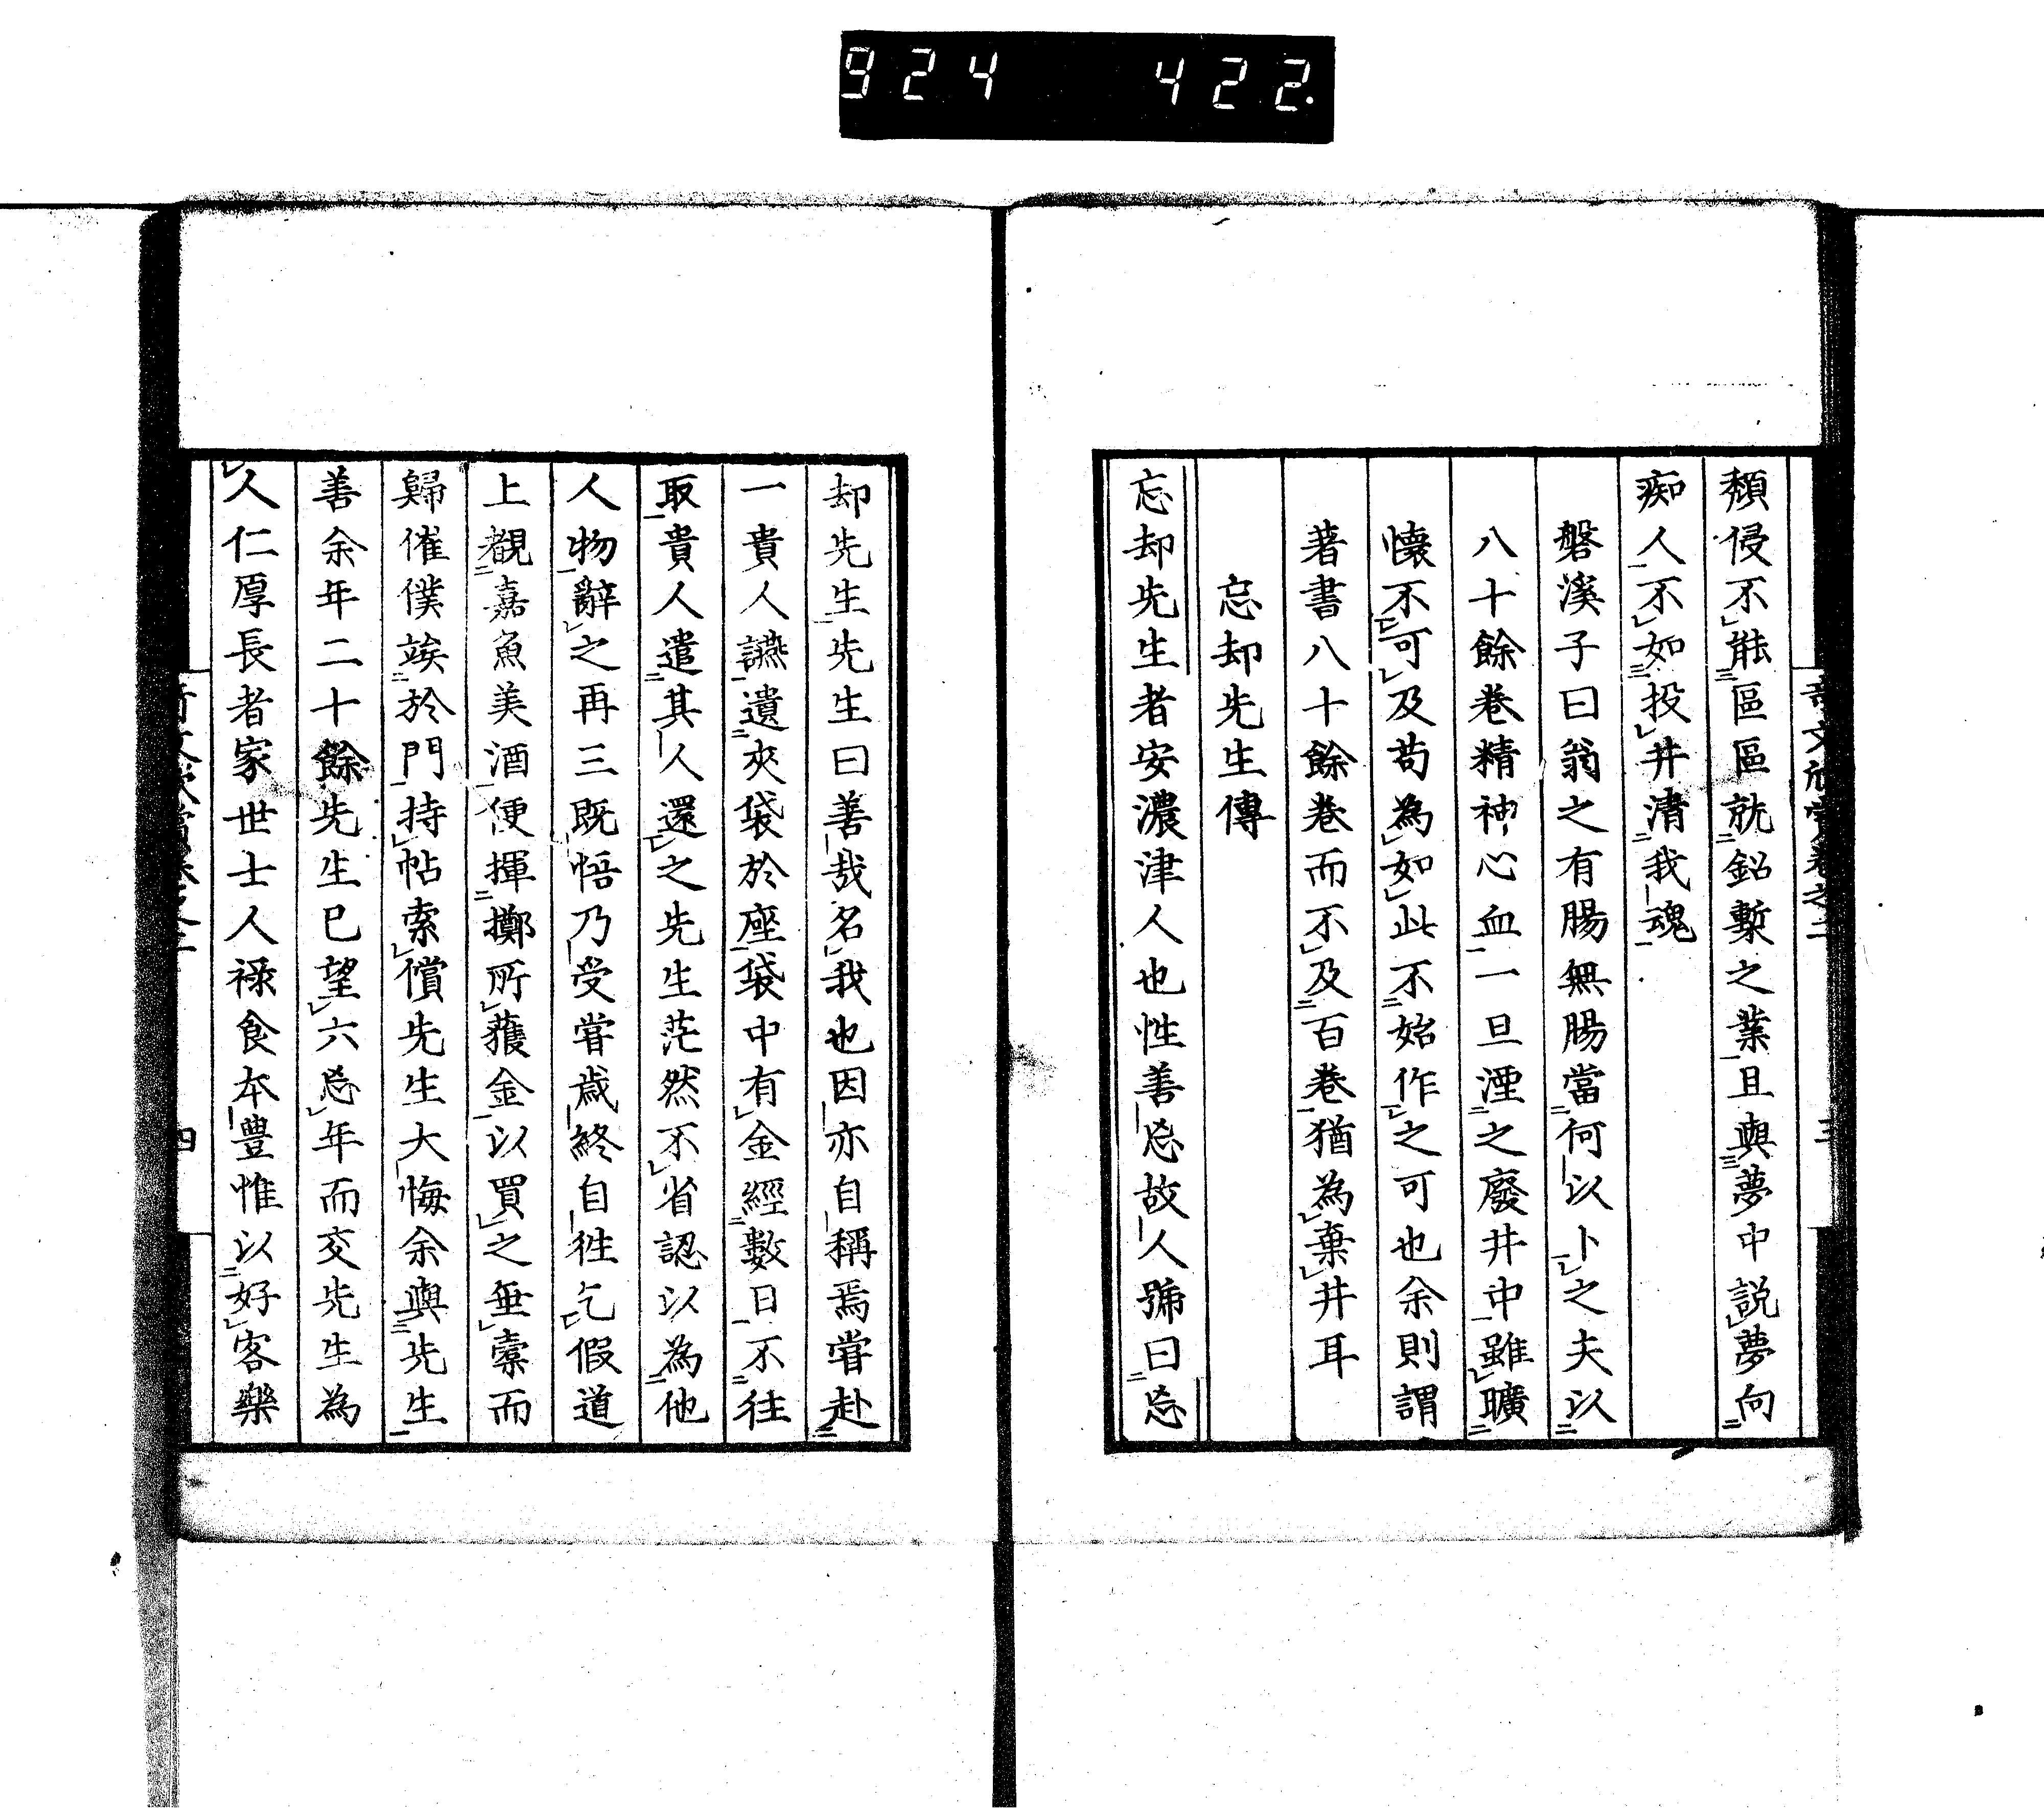 924 422
頽侵不能區區就鉛槧之業且與夢中説夢向
痴人不如投井清我魂
磐溪子曰翁之有腸無腸當何以卜之夫以
八十餘卷精神心血一旦湮之廢井中雖曠
懷不可及苟為如此不始作之可也余則謂
著書八十餘卷而不及百卷猶為棄井耳
忘却先生傳
忘却先生者安濃津人也性善忘故人號曰忘
却先生先生曰善哉名我也因亦自稱焉嘗赴
一貴人讌遺夾袋於座袋中有金經數日不往
取貴人遣其人還之先生茫然不省認以為他
人物辭之再三既悟乃受嘗歳終自徃乞假道
上覩嘉魚美酒便揮擲所獲金以買之垂橐而
歸催僕竢於門持帖索償先生大悔余與先生
善余年二十餘先生已望六忘年而交先生為
人仁厚長者家世士人禄食本豊惟以好客樂
四